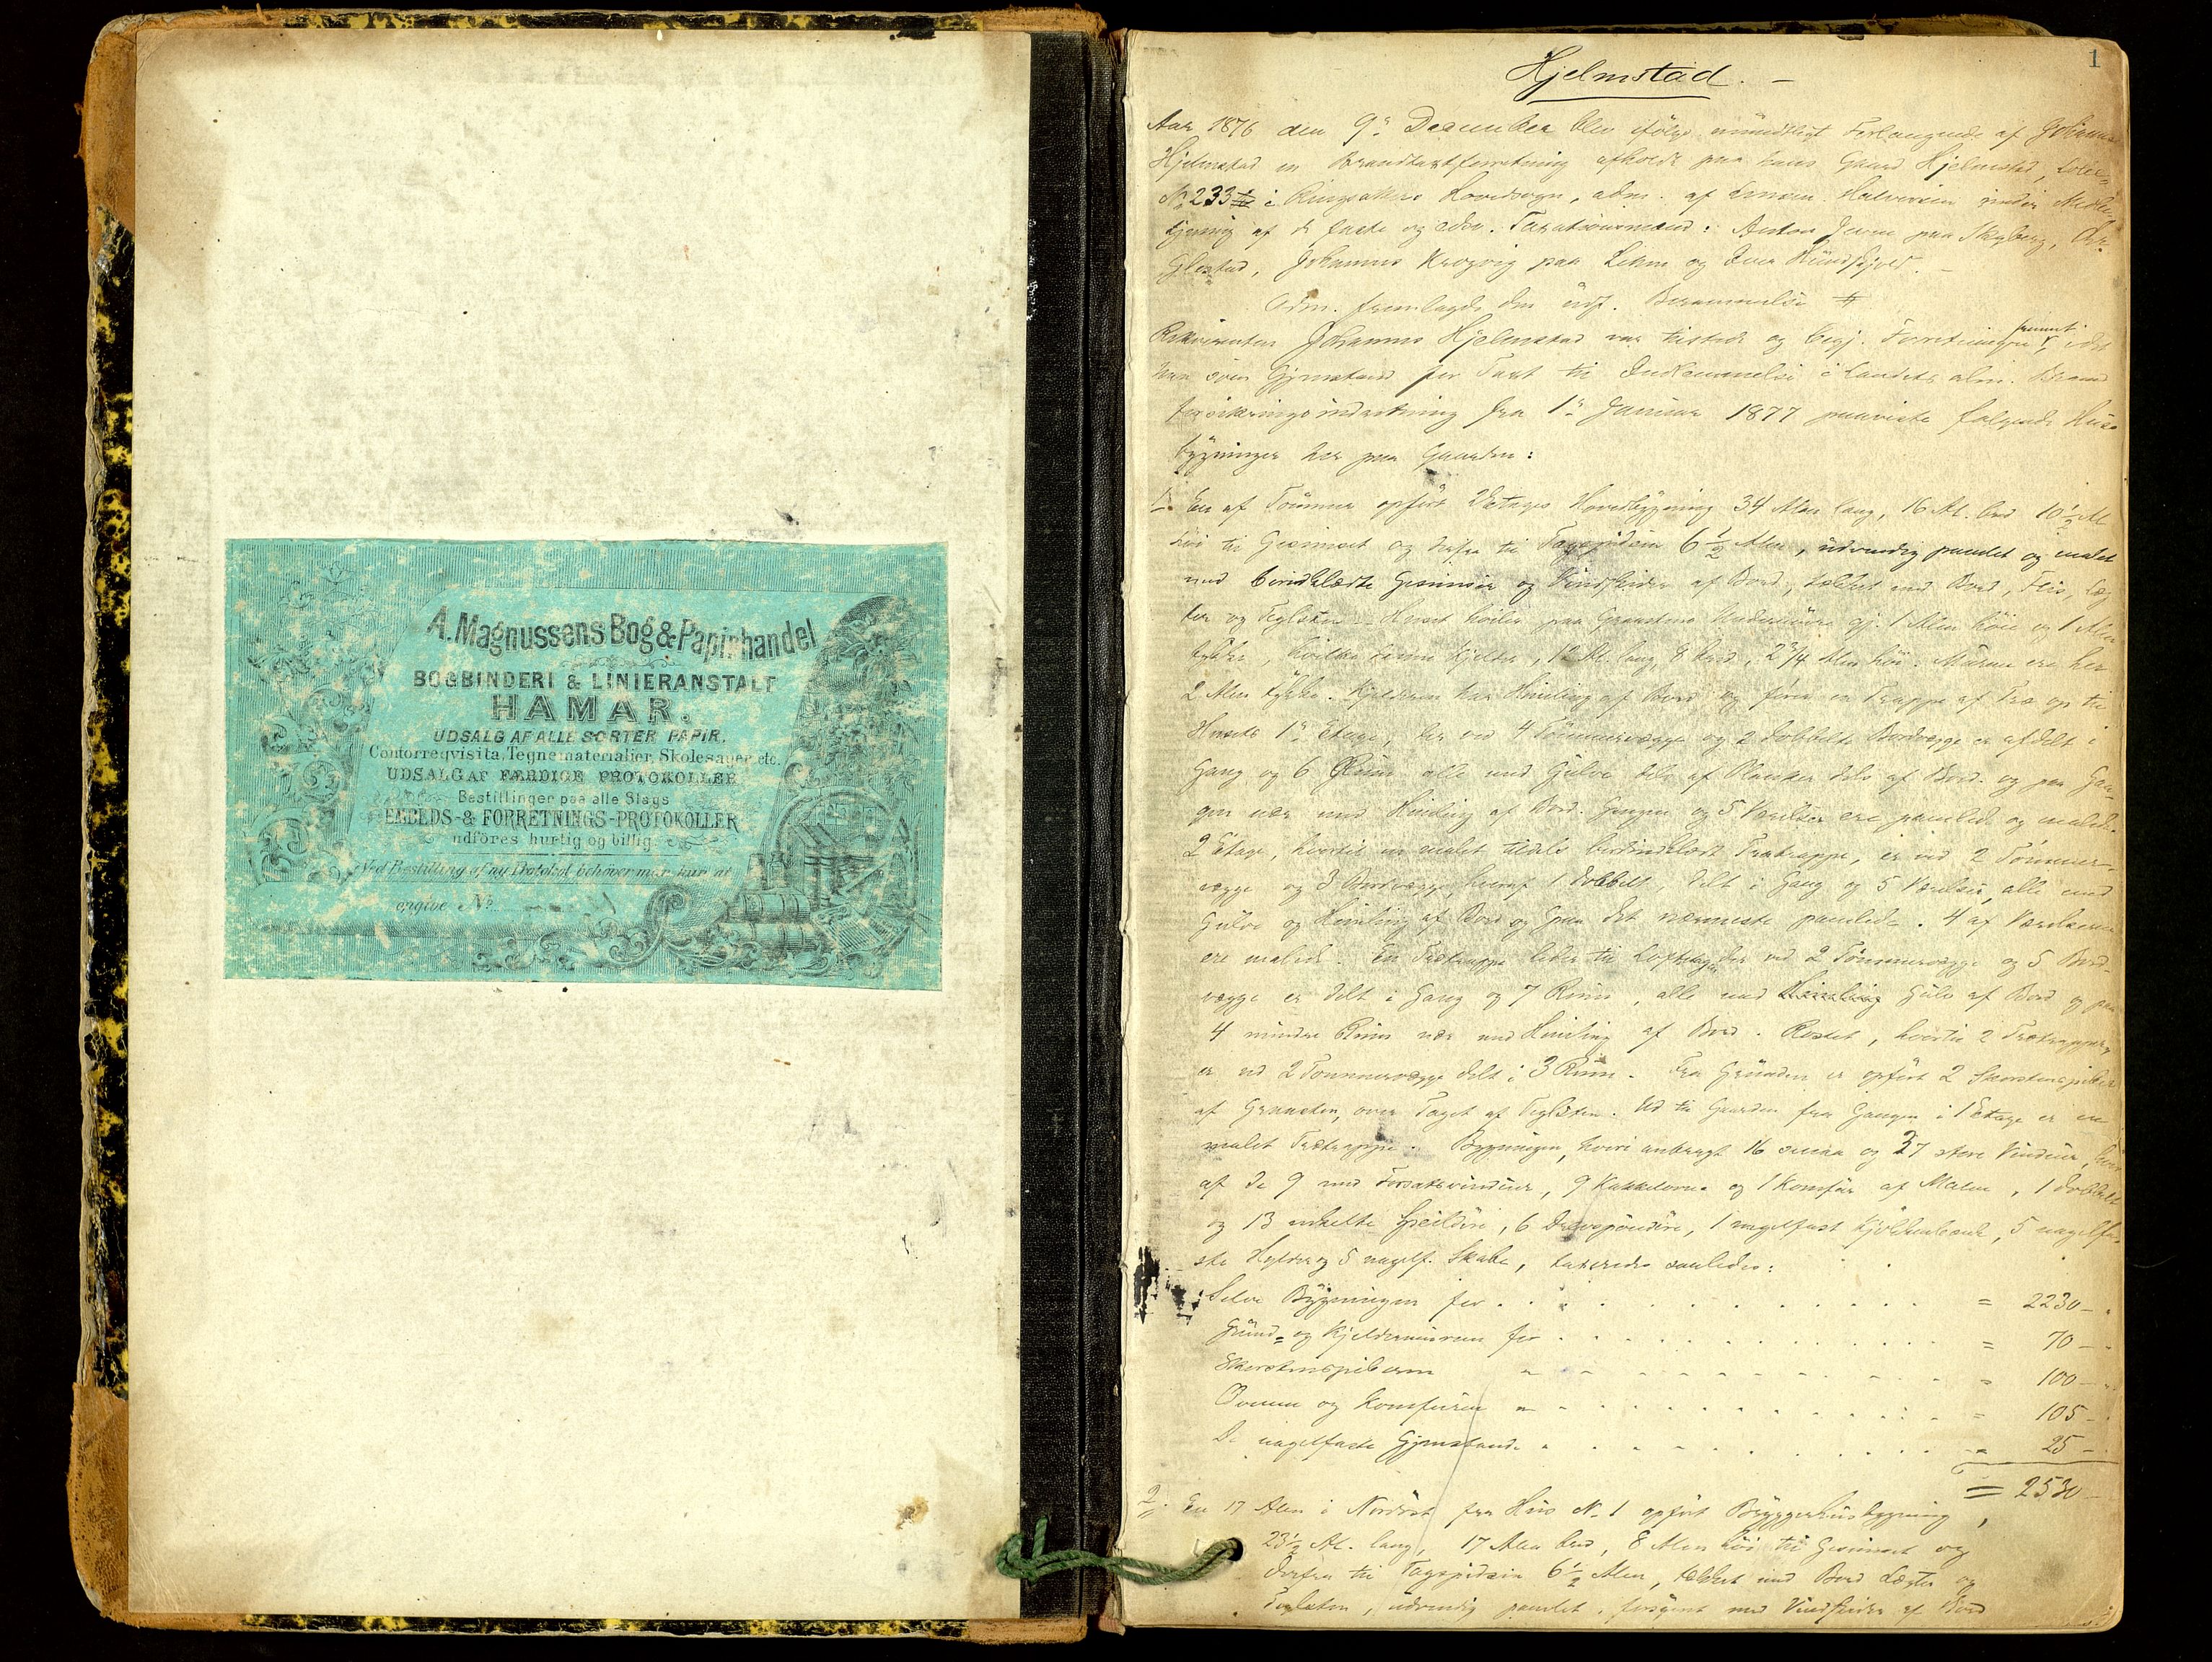 A. Magnussens Bog & Papirhandel
BOGBINDERI & LINIERANSTALT
HAMAR.
UDSALG AF ALLE SORTER PAPIR,
Contorreqvisita, Tegnematerialier, Skolesager etc.
UDSALG AF FÆRDIGE PROTOKOLLER
Bestillinger paa alle Slags
EMBEDS- & FORRETNINGS-PROTOKOLLER
udföres hurtig og billig.
Ved Bestilling af ny Protokol behöver man kun at
opgive No
1
Hjelmstad. –
Aar 1876 den 9de December blev ifölge mündtligt Forlangende af Johannes
Hjelmstad en Brandtaxtforretning afholdt paa hans Gaard Hjelmstad,
No 233 i Ringsakers Hovedsogn, adm. af Halvorsen under Medvirk
af de faste og edsv. Taxationsmænd: Anton paa Skyberg,
Johannes Krogvig paa og Iver
Adm. fremlagde den udf. Berammelse
Rekvirenten Johannes Hjelmstad var tilstede og begj. Forretningen fremmet, idet
han som Gjenstand for Taxt til Indlemmelse i Landets alm. Brand
forsikringsindretning fra 1ste Januar 1877 paaviste følgende Huse
bygninger her paa Gaarden:
1. En af Tömmer opfört 2 Etages Hovedbygning 34 Alen lang, 16 Al. bred 10½ Al
höi til Gesimset og derfra til Tagspidsen 6½ Alen, udvendig panelet og malet
med bordklædte Gesimser og Vindskeder af Bord, tækket med Bord, Flis, Læg
ter og Teglsten. Huset hviler paa Graastens Undermure gj. 1 Alen höie og 1 Alen
tykke, hvilke Kjelder, 12 Al. lang, 8 bred, 2¾ Alen höi. Murene ere her
2 Alen tykke. Kjelderen har Himling af Bord og förer en Trappe af Træ op til
Husets 1ste Etage, der ved 4 Tömmervægge og 2 dobbelte Bordvægge er afdelt i
Gang og 6 Rum alle med Gulve dels af Planker dels af Bord og paa Gan-
gen nær med Himling af Bord. Gangen og 5 Værelser ere panelede og malede.
2 Etage, hvortil en malet tildels bordindklædt Trætrappe, er ved 2 Tömmer-
vægge og 3 Bordvægge, hvoraf 1 dobbelt, delt i Gang og 5 Værelser, alle med
Gulve og Himling af Bord og paa det nærmeste panelede. 4 af Værelserne
ere malede. En Trætrappe leder til Loftetagen der ved 2 Tömmervægge og 5 Bord-
vægge er delt i Gang og 7 Rum, alle med Himling Gulv af Bord og paa
4 mindre Rum nær med Himling af Bord. Röstet, hvortil 2 Trætrapper,
er ved 2 Tömmervægge delt i 3 Rum. Fra Grunden er opfört 2 Skorstenspiber
af Graasten, over Taget af Teglsten. Ud til Gaarden fra Gangen i 1 Etage er en
malet Trætrappe. Bygningen, hvori anbragt 16 smaa og 37 störe Vinduer, hvor
af de 9 med Forsatsvinduer, 9 Kakkelovne og 1 Komfur af Malm, 1 dobbelt
og 13 enkelte Speildöre, 6 1 nagelfast Kjökkenbænk, 5 nagelfa-
ste Hylder og 5 nagelf. Skabe, taxeredes saaledes:
Selve Bygningen for = 2230 –
Grund- og Kjeldermurene for = 70 –
Skorstenspiberne = 100 –
Ovnene og Komfuren = 105 –
De nagelfaste Gjenstande 25 –
= 2530
2. En 17 Alen i Nordöst fra Hus No 1 opfört Bryggerhusbygning,
23½ Al. lang, 17 Alen bred, 8 Alen höi til Gesimset og
derfra til Tagspidsen 6½ Alen, tækket med Bord Lægter og
Teglsten, udvendig panelet, forsynet med Vindskeder af Bord